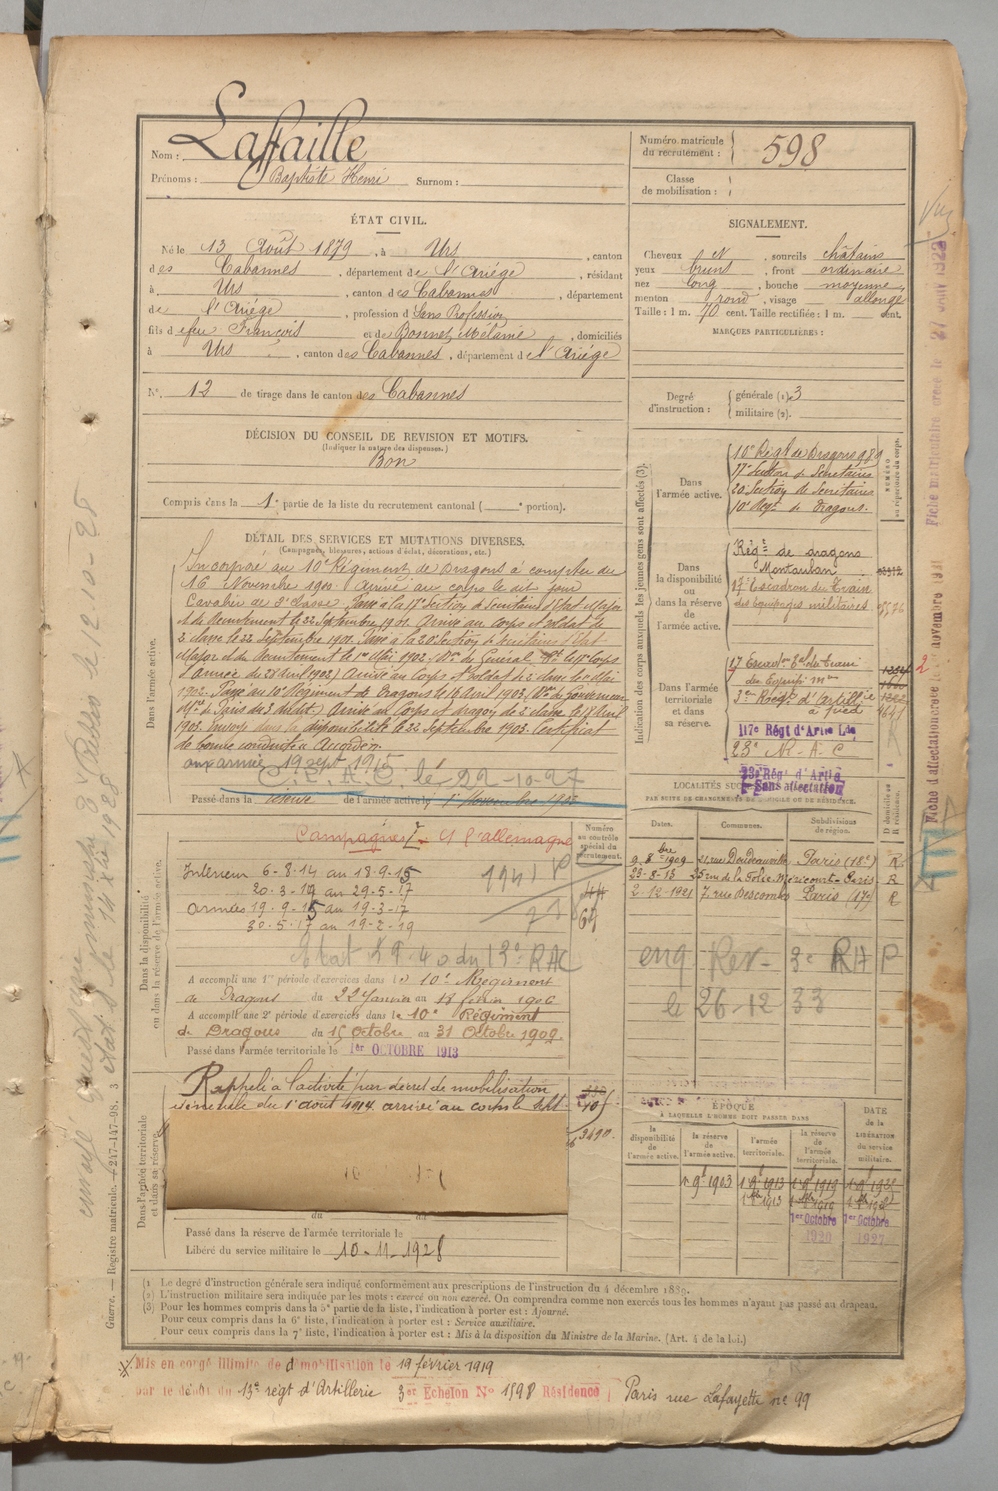 Nom : Laffaille
Prénoms : Baptiste Henri Surnom :
Numéro matricule du recrutement : 598
Classe de mobilisation :
ÉTAT CIVIL.
Né le 13 Août 1879, à Urs, canton
des Cabannes, département de l'Ariége, résidant
à Urs, canton des Cabannes, département
de l'Ariége, profession d Sans Profession
fils d efeu François et de Bonnet Mélanie, domiciliés
à Urs, canton des Cabannes, département de l'Ariége
N° 12 de tirage dans le canton des Cabannes
SIGNALEMENT.
Cheveux et, sourcils châtains
yeux bruns, front ordinaire
nez long, bouche moyenne,
menton rond, visage allongé
Taille : 1 m. 70 cent. Taille rectifiée : 1 m. cent.
MARQUES PARTICULIÈRES :
Degré d'instruction : générale (1). 3
militaire (2).
DÉCISION DU CONSEIL DE REVISION ET MOTIFS.
(Indiquer la nature des dispenses.)
Bon
Compris dans la 1e partie de la liste du recrutement cantonal ( e portion).
DÉTAIL DES SERVICES ET MUTATIONS DIVERSES.
(Campagnes, blessures, actions d'éclat, décorations, etc.)
Dans l'armée active.
Incorporé au 10e Régiment de Dragons à compter du
16 Novembre 1900. Arrivé au corps le dit jour
Cavalier de 2e classe. Passé à la 17e Section de Secrétaires d'Etat Major
et du Recrutement le 22 Septembre 1901. Arrivé au Corps et soldat de
2 classe le 22 Septembre 1901. Passé à la 20e Section de Secrétaires d'Etat
Major et du Recrutement le 1er Mai 1902 (Don du Général 17e Corps
d'armée du 28 avril 1902) Arrivé au Corps et soldat de 2 classe le 1er Mai
1902. Passé au 10e Régiment de Dragons le 16 Avril 1903 (Don du Gouverneur
Mre de Paris du 3 dudit) Arrivé au Corps et dragon de 2 classe le 18 Avril
1903. Envoyé dans la disponibilité le 22 Septembre 1903. Certificat
de bonne conduite Accordé.
aux armées 19 sept 1915
C. R. A. C. le 22-10-27
Passé dans la réserve de l'armée active le 1er Novembre 1903
Indication des corps auxquels les jeunes gens sont affectés (3).
NUMÉRO au répertoire du corps.
Dans l'armée active.
10e Régt de Dragons 989
17e Section de Secrétaires
20e Section de Secrétaires
10e Régt de Dragons.
Dans la disponibilité ou dans la réserve de l'armée active.
Régt de dragons
Montauban
17e Escadron du Train
des équipages militaires
Dans l'armée territoriale et dans sa réserve.
17 Escadron Tal du Train
des Equip. Mres
3e Régt d'Artillie
à pied 4641
117e Régt d'Artie Lde
23e R. A. C
23e Régt d'Artie
Sans affectation
LOCALITÉS SUCCESSIVES
PAR SUITE DE CHANGEMENTS DE DOMICILE OU DE RÉSIDENCE.
Dates. Communes. Subdivisions de région. D domicile ou R résidence.
9-8bre-1909 21 rue Doudeauville Paris (18e) R
23-8-13 25 rue de la Folie-Méricourt Paris R
2-12-1921 7 rue Descombes Paris (17e) R
eng Rev- 3e RAP
le 26-12 33
Dans la disponibilité ou dans la réserve de l'armée active.
Numéro au contrôle spécial du recrutement.
Campagnes Ct l'allemagne
Intérieur 6-8-14 au 18-9-15
20-3-17 au 29-5-17
armées 19-9-15 au 19-3-17
30-5-17 au 19-2-19
Etat 89-40 du 13e RAC
A accompli une 1re période d'exercices dans le 10e Régiment
de Dragons du 22 Janvier au 18 février 1906
A accompli une 2e période d'exercices dans le 10e Régiment
de Dragons du 15 Octobre au 31 Octobre 1909.
Passé dans l'armée territoriale le 1er OCTOBRE 1913
Dans l'armée territoriale et dans sa réserve.
Rappelé à l'activité par décret de mobilisation
générale du 1er août 1914 arrivé au corps le
Passé dans la réserve de l'armée territoriale le
Libéré du service militaire le 10-11-1928
ÉPOQUE
À LAQUELLE L'HOMME DOIT PASSER DANS
DATE de la LIBÉRATION du service militaire.
la disponibilité de l'armée active.
la réserve de l'armée active.
l'armée territoriale.
la réserve de l'armée territoriale.
1 9bre 1903 1 9bre 1913 1 9bre 1919
1 8bre 1913 1 8bre 1919
1er Octobre 1er Octobre
1920 1927
(1) Le degré d'instruction générale sera indiqué conformément aux prescriptions de l'instruction du 4 décembre 1889.
(2) L'instruction militaire sera indiquée par les mots : exercé ou non exercé. On comprendra comme non exercés tous les hommes n'ayant pas passé au drapeau.
(3) Pour les hommes compris dans la 5e partie de la liste, l'indication à porter est : Ajourné.
Pour ceux compris dans la 6e liste, l'indication à porter est : Service auxiliaire.
Pour ceux compris dans la 7e liste, l'indication à porter est : Mis à la disposition du Ministre de la Marine. (Art. 4 de la loi.)
Mis en congé illimité de démobilisation le 19 février 1919
par le dépôt du 13e régt d'Artillerie 3er Echelon N° 1598 Résidence Paris rue Lafayette n° 99
Guerre. — Registre matricule. — 247-147-98. 3
Fiche matriculaire créée le 27 JANV 1922
Fiche d'affectation créée le novembre 1931